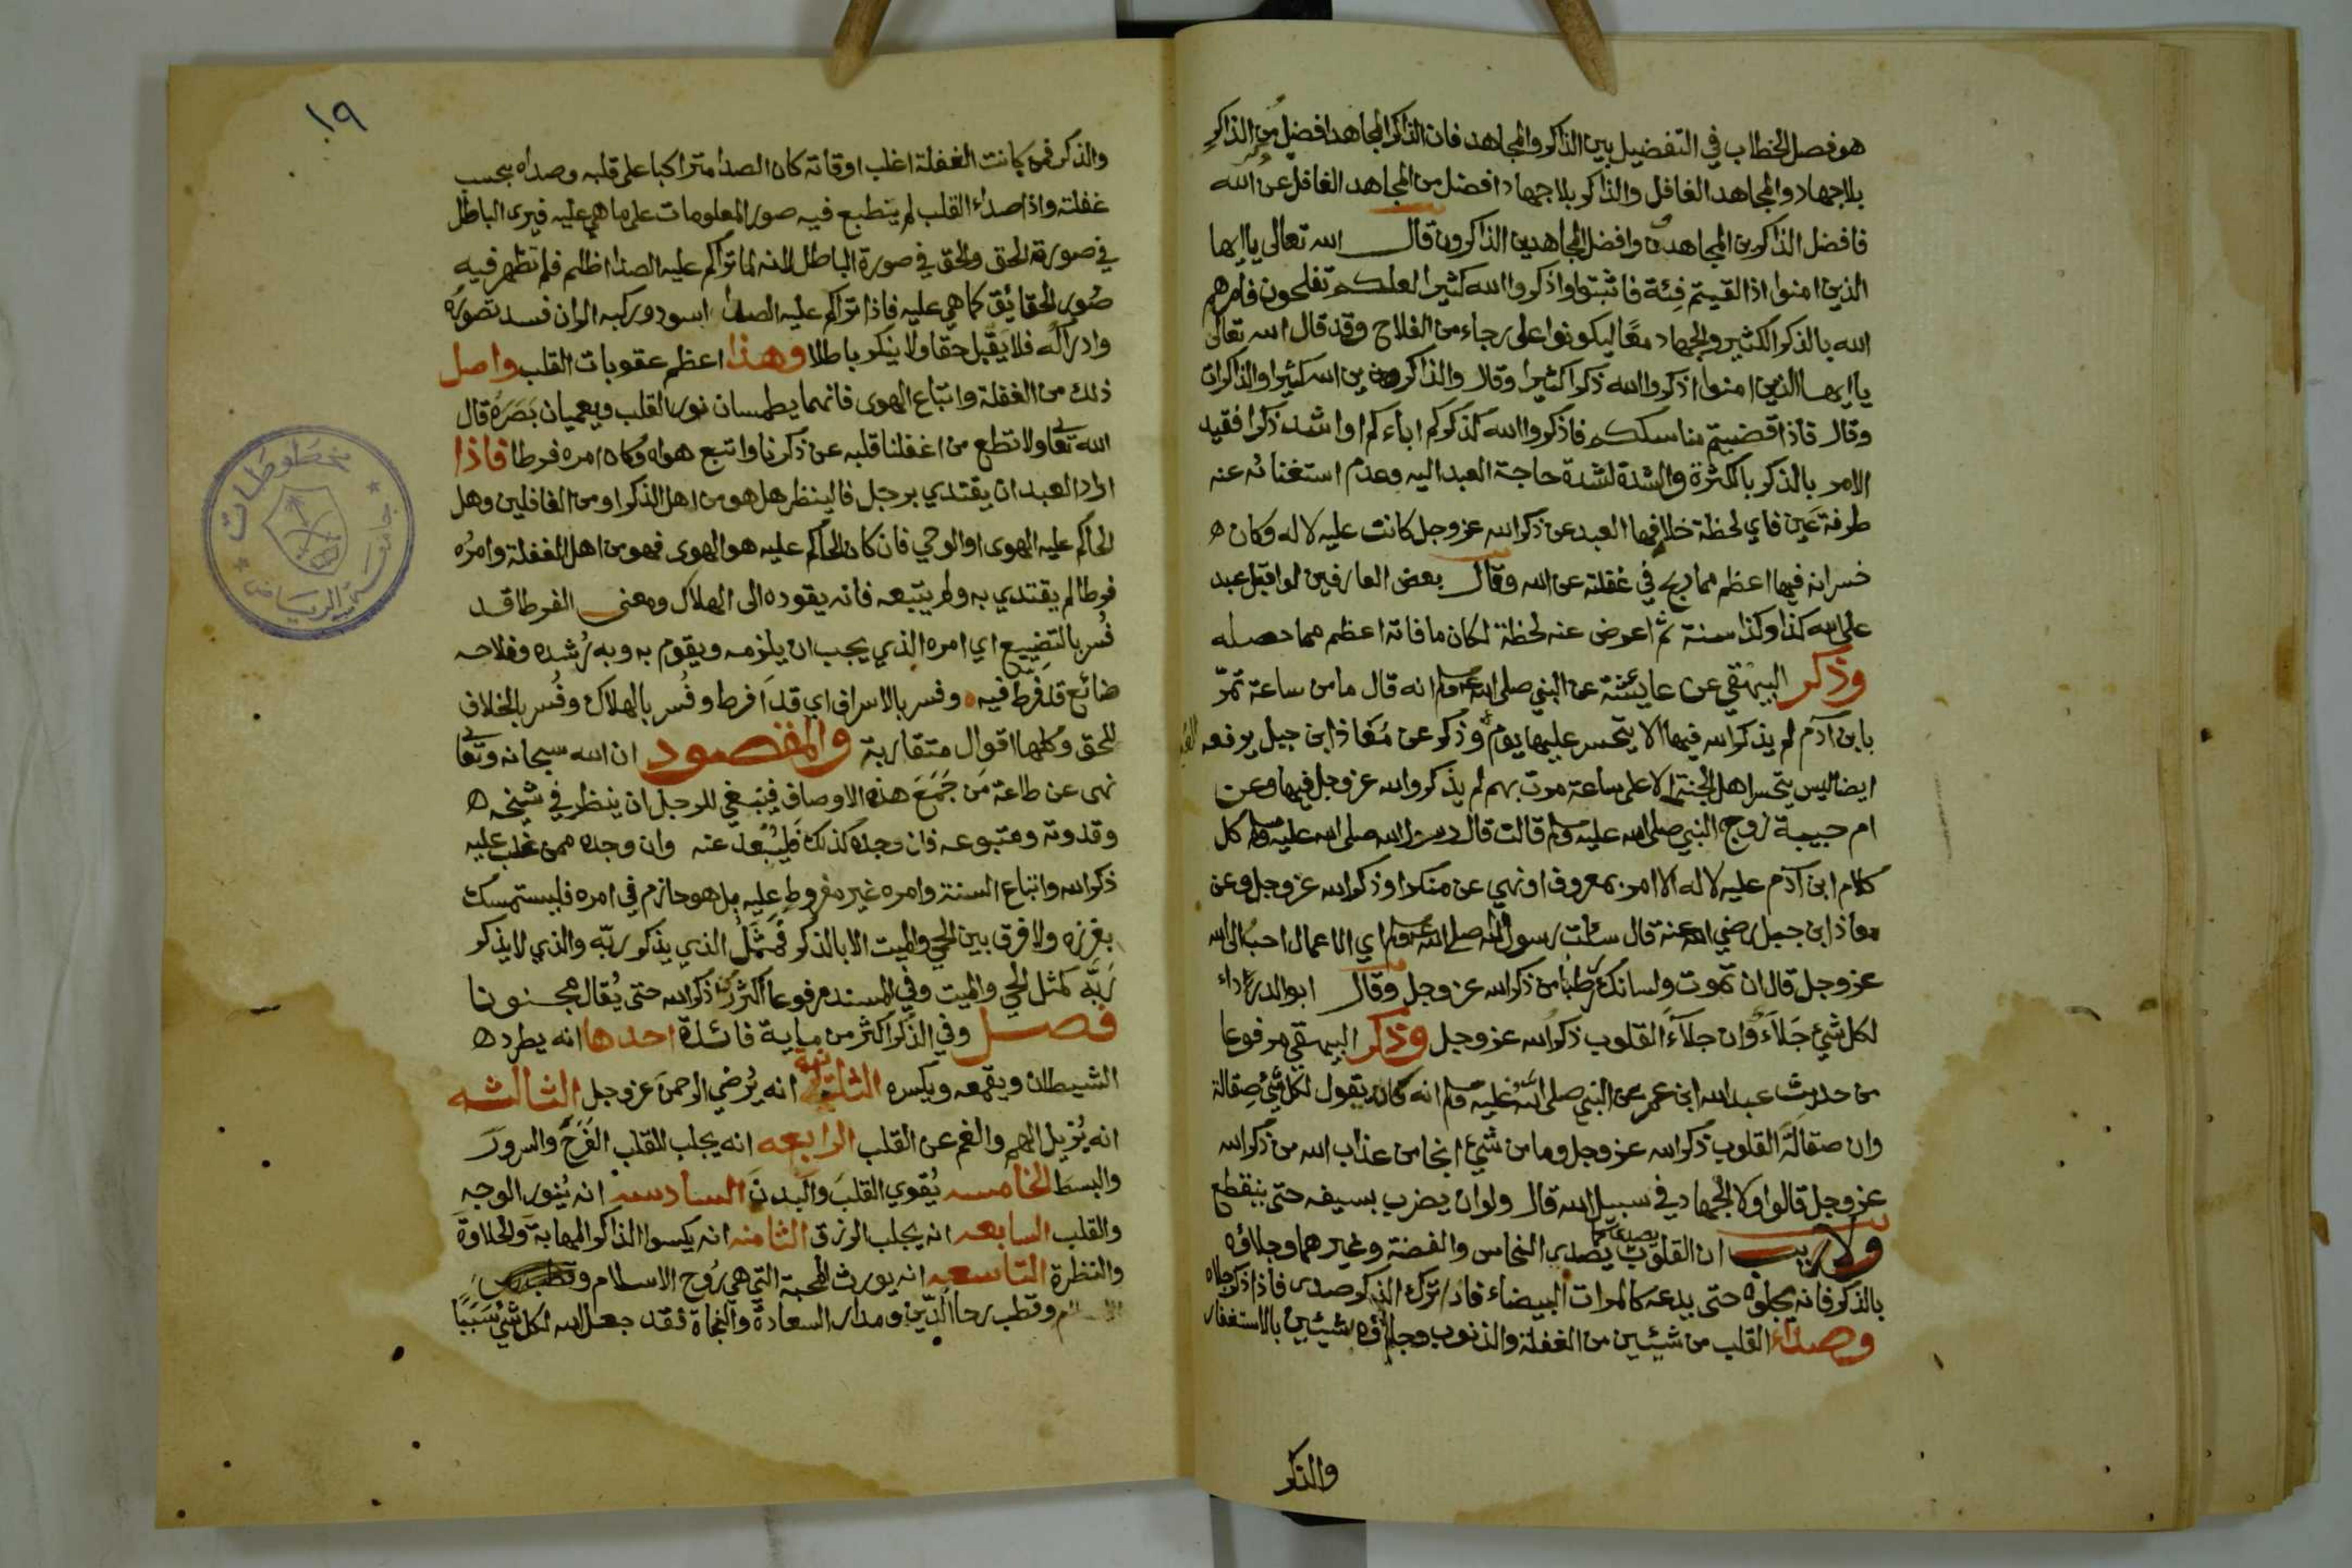 هو فصل الخطاب في التفضيل بين الذاكر والمجاهد فان الذاكر المجاهد افضل من الذاكر
بلا جهاد والمجاهد الغافل والذاكر بلا جهاد افضل من المجاهد الغافل عن الله
فافضل الذاكرين المجاهدون وافضل المجاهدين الذاكرون قال الله تعالى ياايها
الذين امنوا اذا لقيتم فئة فاثبتوا واذكروا الله كثيرا لعلكم تفلحون فامرهم
الله بالذكر الكثير والجهاد معًا ليكونوا على رجاء من الفلاح وقد قال الله تعالى
ياايها الذين امنوا اذكروا الله ذكرا كثيرا وقال والذاكرين الله كثيرا والذاكرات
وقال فاذا قضيتم مناسككم فاذكروا الله كذكركم اباءكم او اشد ذكرا فقيد
الامر بالذكر بالكثرة والشدة لشدة حاجة العبد اليه وعدم استغنائه عنه
طرفة عين فاي لحظة خلا فيها العبد عن ذكر الله عز وجل كانت عليه لا له وكان ه
خسرانه فيها اعظم مما ربح في غفلته عن الله وقال بعض العارفين لو اقبل عبد
على الله كذا وكذا سنة ثم اعرض عنه لحظة لكان ما فاته اعظم مما حصله
وذكر البيهقي عن عايشة عن النبي صلى الله عليه وسلم انه قال ما من ساعة تمرّ
بابن آدم لم يذكر الله فيها الا يتحسر عليها يوم وذكر عن مُعَاذ ابن جبل يرفعه
ايضا ليس يتحسر اهل الجنة الا على ساعة مرت بهم لم يذكروا الله عز وجل فيها وعن
ام حبيبة زوج النبي صلى الله عليه وسلم قالت قال رسول الله صلى الله عليه وسلم كل
كلام ابن آدم عليه لا له الا امر بمعروف او نهي عن منكر او ذكر الله عز وجل وعن
معاذ ابن جبل رضي الله عنه قال سالت رسول الله صلى الله عليه وسلم اي الاعمال احب الى الله
عز وجل قال ان تموت ولسانك رطبا من ذكر الله عز وجل وقال ابو الدرداء
لكل شيء جَلاَء وان جلآءَ القلوب ذكر الله عز وجل وذكر البيهقي مرفوعا
من حديث عبد الله ابن عمر عن النبي صلى الله عليه وسلم انه كان يقول لكل شيء صِقالة
وان صقالة القلوب ذكر الله عز وجل وما من شيء انجا من عذاب الله من ذكر الله
عز وجل قالوا ولا الجهاد في سبيل الله قال ولو ان يضرب بسيفه حتى ينقطع
ولاريب ان القلوب يصدى كما يصدى النحاس والفضة وغيرهما وجلاؤه
بالذكر فانه يجلوه حتى يدعه كالمرات البيضاء فاذا ترك الذكر صدى فاذا ذكر جلاه
وصداء القلب من شيئين من الغفلة والذنوب وجلاؤه بشيئين بالاستغفار
والذكر
١٩
والذكر فمن كانت الغفلة اغلب اوقاته كان الصدا متراكبا على قلبه وصداه بحسب
غفلته واذا صداء القلب لم ينطبع فيه صور المعلومات على ما هي عليه فيرى الباطل
في صورة الحق والحق في صورة الباطل لانه لما تراكم عليه الصدا اظلم فلم تظهر فيه
صُور الحقائق كما هي عليه فاذا تراكم عليه الصدا اسود وركبه الران فسد تصوره
وادراكه فلا يَقبل حقا ولا ينكر باطلا وهذا اعظم عقوبات القلب واصل
ذلك من الغفلة واتباع الهوى فانهما يطمسان نور القلب ويعميان بَصَرَهُ قال
الله تعا ولا تطع من اغفلنا قلبه عن ذكرنا واتبع هواه وكان امره فرطا فاذا
اراد العبد ان يقتدي برجل فالينظر هل هو من اهل الذكر او من الغافلين وهل
الحاكم عليه الهوى او الوحي فان كان الحاكم عليه هو الهوى فهو من اهل الغفلة وامرُه
فرطا لم يقتدي به ولم يتبعه فانه يقوده الى الهلاك ومعنى الفرط قد
فُسر بالتضييع اي امره الذي يجب ان يلزمه ويقوم به وبه رُشده وفلاحه
ضائع قد فرط فيه وفسر بالاسراف اي قد اَفرط وفُسر بالهلاك وفُسر بالخلاف
للحق وكلها اقوال متقاربة والمقصود ان الله سبحانه وتعا
نهى عن طاعة مَن جَمَعَ هذه الاوصاف فينبغي للرجل ان ينظر في شيخه ه
وقدوته ومتبوعه فان وجده كذلك فليُبْعد عنه وان وجده ممن غلب عليه
ذكر الله واتباع السنة وامره غير مفروط عليه بل هو حازم في امره فليستمسك
بغرزه ولا فرق بين الحي والميت الا بالذكر فمَثَلُ الذي يذكر ربّه والذي لا يذكر
رَبَّه كمثل الحي والميت وفي المسند مرفوعا اكثروا ذكر الله حتى يُقال مجنونا
فصل وفي الذّكر اكثر من ماية فائدة احدها انه يطرد ه
الشيطان ويقمعه ويكسره الثانية انه يُرضي الرحمن عز وجل الثالثه
انه يُزيل الهم والغم عن القلب الرابعه انه يجلب للقلب الفَرَحَ والسرورَ
والبسطَ الخامسه يُقوي القلبَ والبدنَ السادسه انه يُنور الوجه
والقلب السابعه انه يجلب الرزق الثامنه انه يكسوا الذاكر المهابةَ والحلاوة
والنظرة التاسعه انه يورث المحبة التي هي رُوح الاسلام
وقطب رحا الدّين ومدار السعادة والنجاة فقد جعل الله لكل شيء سَبَبًا
مخطوطات
جامعة الرياض